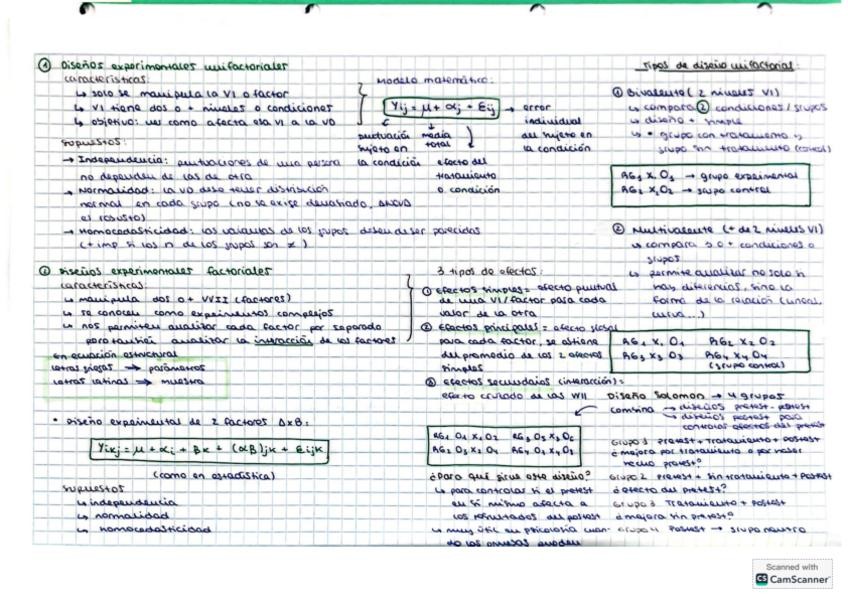 ① Diseños experimentales unifactoriales
características:
↳ solo se manipula la VI o factor
↳ VI tiene dos o + niveles o condiciones
↳ objetivo: ver como afecta esa VI a la VD
supuestos:
→ Independencia: puntuaciones de una persona
no dependen de las de otra
→ Normalidad: la VD debe tener distribución
normal en cada grupo (no se exige demasiado, ANOVA
es robusto)
→ Homocedasticidad: las varianzas de los grupos deben de ser parecidas
(+ imp si los n de los grupos son ≠)
Modelo matemático:
Yij = μ + αj + Eij → error
individual
del sujeto en
la condición
puntuación
sujeto en
la condición
media
total
efecto del
tratamiento
o condición
Tipos de diseño unifactorial:
① Bivalente (2 niveles VI)
↳ compara ② condiciones / grupos
↳ diseño + simple
↳ grupo con tratamiento y
grupo sin tratamiento (control)
AG1 X1 O1 → grupo experimental
AG2 X2 O2 → grupo control
② Multivalente (+ de 2 niveles VI)
↳ compara 3 o + condiciones o
grupos
↳ permite analizar no solo si
hay diferencias, sino la
forma de la relación (lineal,
curva...)
AG1 X1 O1 AG2 X2 O2
AG3 X3 O3 AG4 X4 O4
(grupo control)
② Diseños experimentales factoriales
características:
↳ manipula dos o + VVII (factores)
↳ se conocen como experimentos complejos
↳ nos permiten analizar cada factor por separado
pero también analizar la interacción de los factores
en ecuación estructural
letras griegas → parámetros
letras latinas → muestra
• Diseño experimental de 2 factores AxB:
Yikj = μ + αi + βk + (αβ)jk + Eijk
(como en estadística)
supuestos
↳ independencia
↳ normalidad
↳ homocedasticidad
3 tipos de efectos:
① Efectos simples = efecto puntual
de una VI/factor para cada
valor de la otra
② Efectos principales = efecto global
para cada factor, se obtiene
del promedio de los 2 efectos
simples
③ Efectos secundarios (interacción) =
efecto cruzado de las VVII
Diseño Solomon → 4 grupos
combina → diseños pretest-postest
→ diseños postest para
controlar efectos del pretest
AG1 O1 X1 O2
AG2 O3 X2 O4
¿Para qué sirve este diseño?
↳ para controlar si el pretest
en sí mismo afecta a
los resultados del postest
↳ muy útil en psicología cuan-
do los
Grupo 1 Pretest + Tratamiento + Postest
¿mejora por tratamiento o por haber
hecho pretest?
Grupo 2 Pretest + sin tratamiento + Postest
¿efecto del pretest?
Grupo 3 Tratamiento + Postest
¿mejora sin pretest?
Grupo 4 Postest → grupo neutro
Scanned with
CS CamScanner